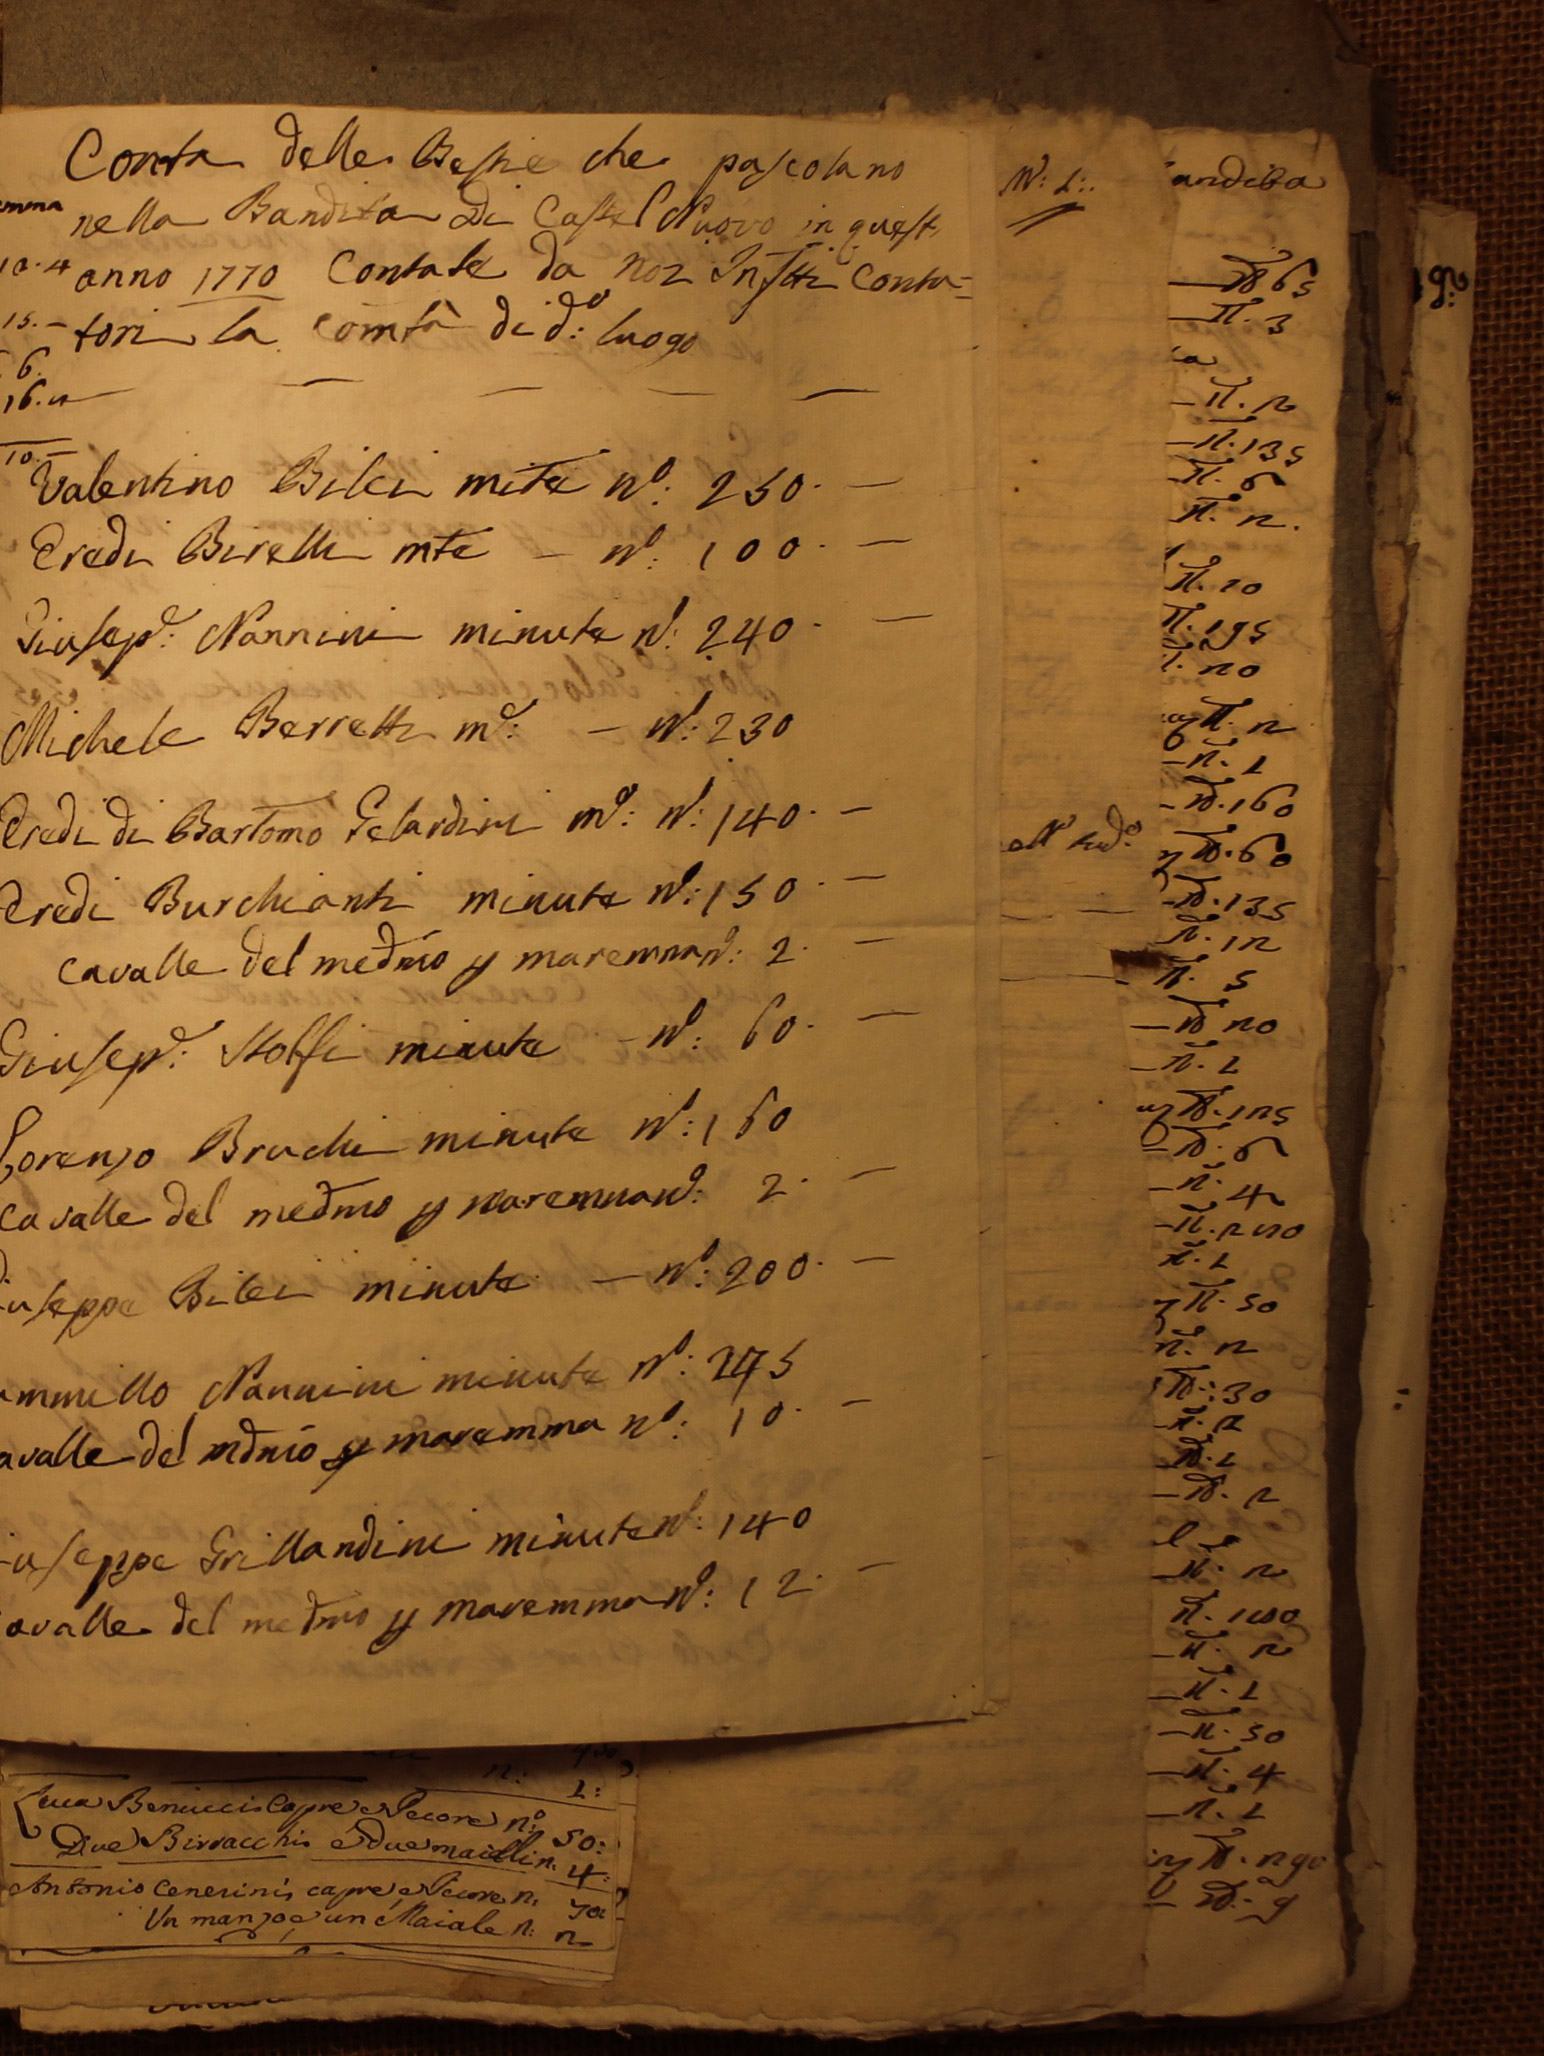 Conta delle Bestie che pascolano
nella Bandita Di Castel Nuovo in quest
anno 1770 Contate da noi Infti Conta=
tori la Comtà di do: luogo
Valentino Bilei mite no: 250. —
Eredi Birelli mte — no: 100. —
Giusepe: Nannini minute no: 240. —
Michele Berretti me: — no: 230
Eredi di Bartomo Gelardini me: no: 140. —
Eredi Burchianti minute no: 150. —
cavalle del medmo p maremma no: 2. —
Giusepe: Stolfi minute — no: 60. —
Lorenzo Bruchi minute no: 160
cavalle del medmo p maremma no: 2. —
iuseppe Bilei minute — no: 200. —
ammillo Nannini minute no: 275
avalle del mdmo p maremma no: 10. —
iuseppe Grillandini minute no: 140
avalle del medmo p maremma no: 12. —
n: 1:
Luca Benucci Capre e Pecore no: 50:
Due Birracchi e Due maialli n. 4:
Antonio Cenerini capre e Pecore n. 70
Un manzo e un Maiale n: 2
mma
10.4
15. —
6.
16.
10. —
N: 1:.
andita
N 65
n. 3
ca
n. 2
n. 135
n. 6
n. 2.
n. 20
n. 195
n. 20
n. 2
n. 1
n. 160
n. 60
n. 135
n. 12
n. 5
n 20
n. 1
n. 125
n. 6
n. 4
n. 1
n. 50
n. 2
n: 30
n. 2
n. 1
n. 2
n. 2
n. 2
n. 1
n. 50
n. 4
n. 1
n. 290
n. 9